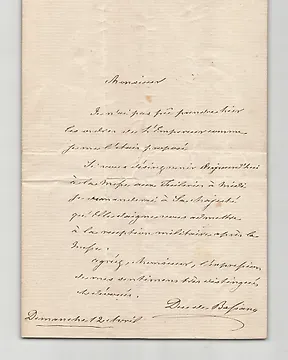 Monsieur
Je n'ai pas pu prendre hier
les ordres de l'Empereur comme
je me l'étais proposé
Si vous Aujourd'hui
à la Messe aux Tuileries à Midi
je demanderai à Sa Majesté
qu'Elle daigne vous admettre
à la réception militaire après la
Messe.
Agréez, Monsieur, l'expression
de mes sentiments très distingués
et dévoués.
Duc de Bassano
Dimanche 12 Avril